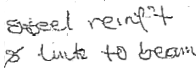 steel reinf't
& link to beam